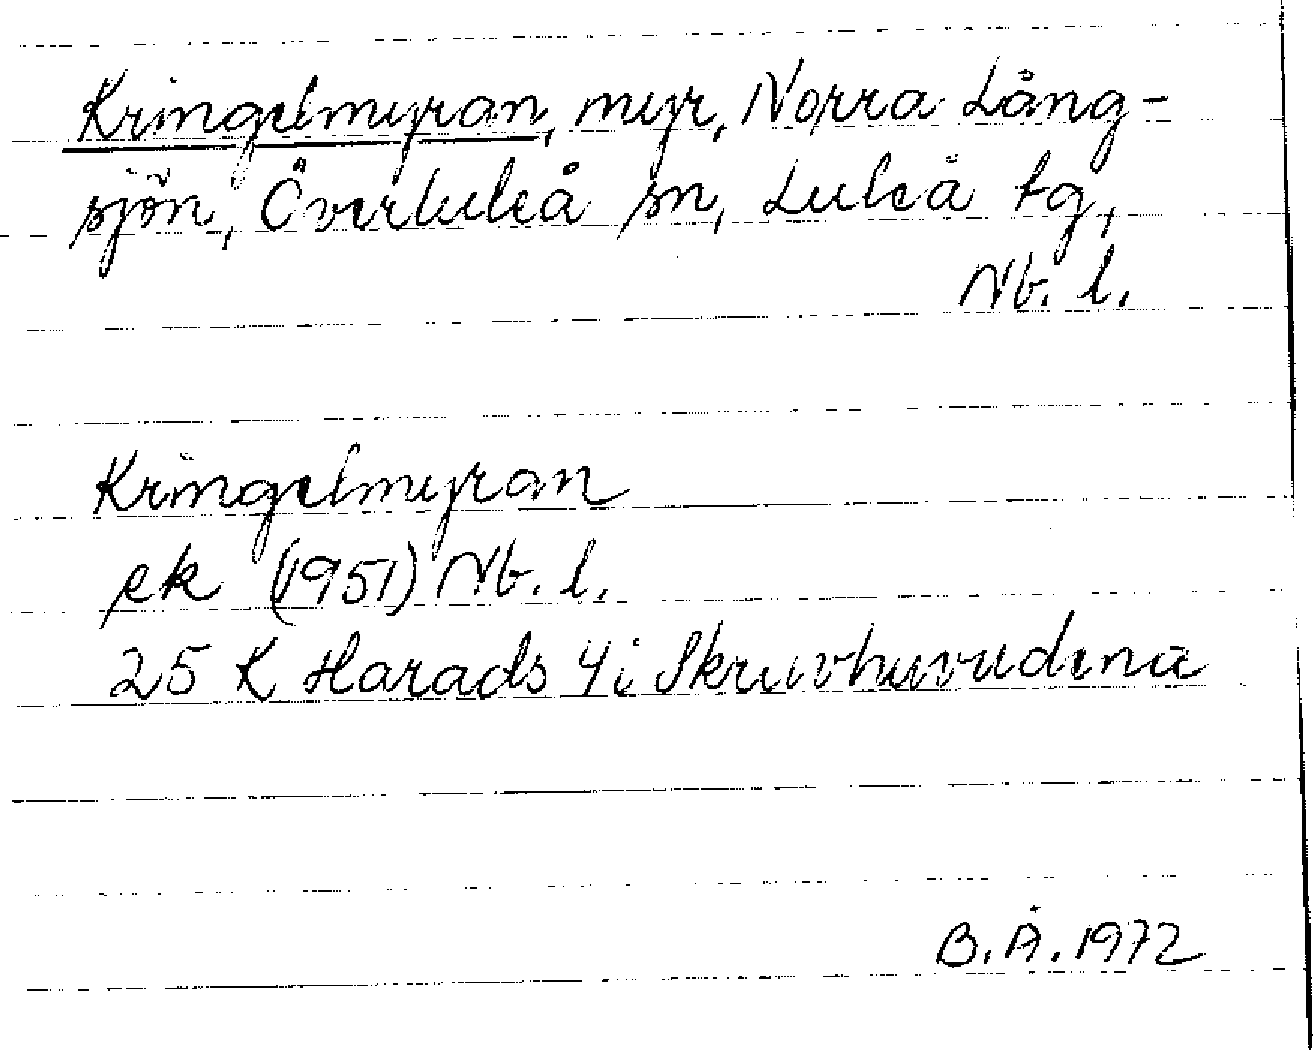 Kringelmyran, myr, Norra Lång-
sjön, Överluleå sn, Luleå tg,
Nb. l.
Kringelmyran
ek (1951) Nb. l.
25 K Harads 4i Skruvhuvudena
B.Å. 1972